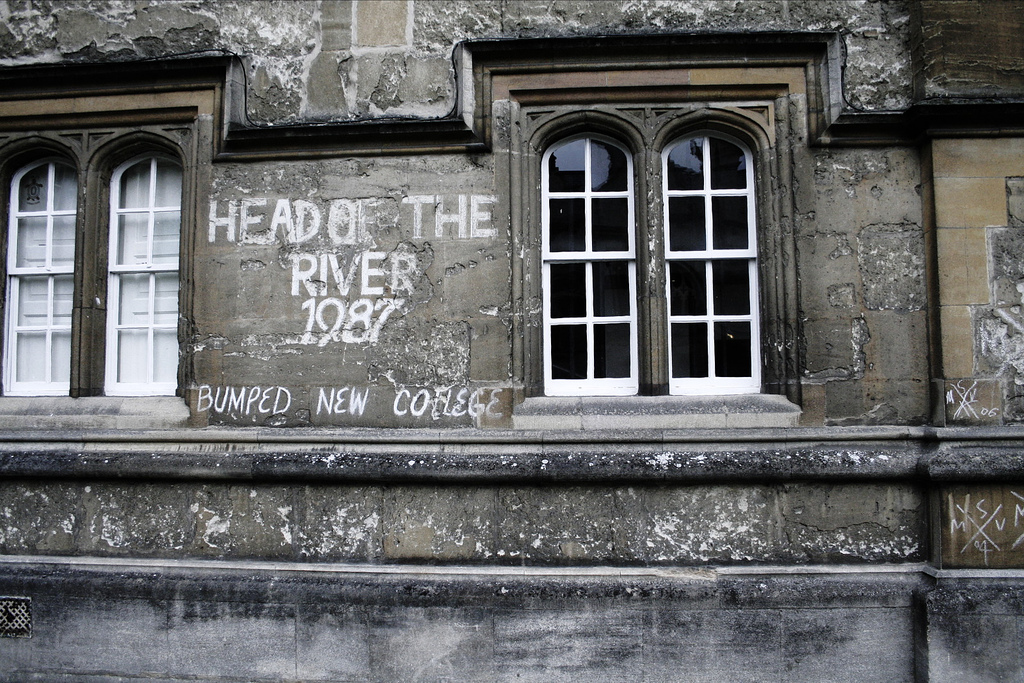 HEAD OF THE
RIVER
1987
BUMPED NEW COLLEGE
M S
06
M S U
04